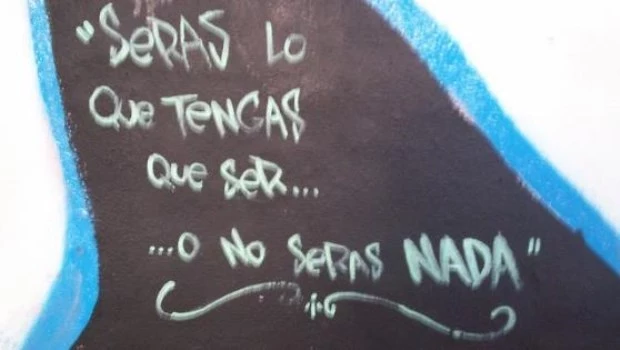 "SeRAS Lo
Que TeNGAS
Que SeR...
...o No SeRAS NADA"